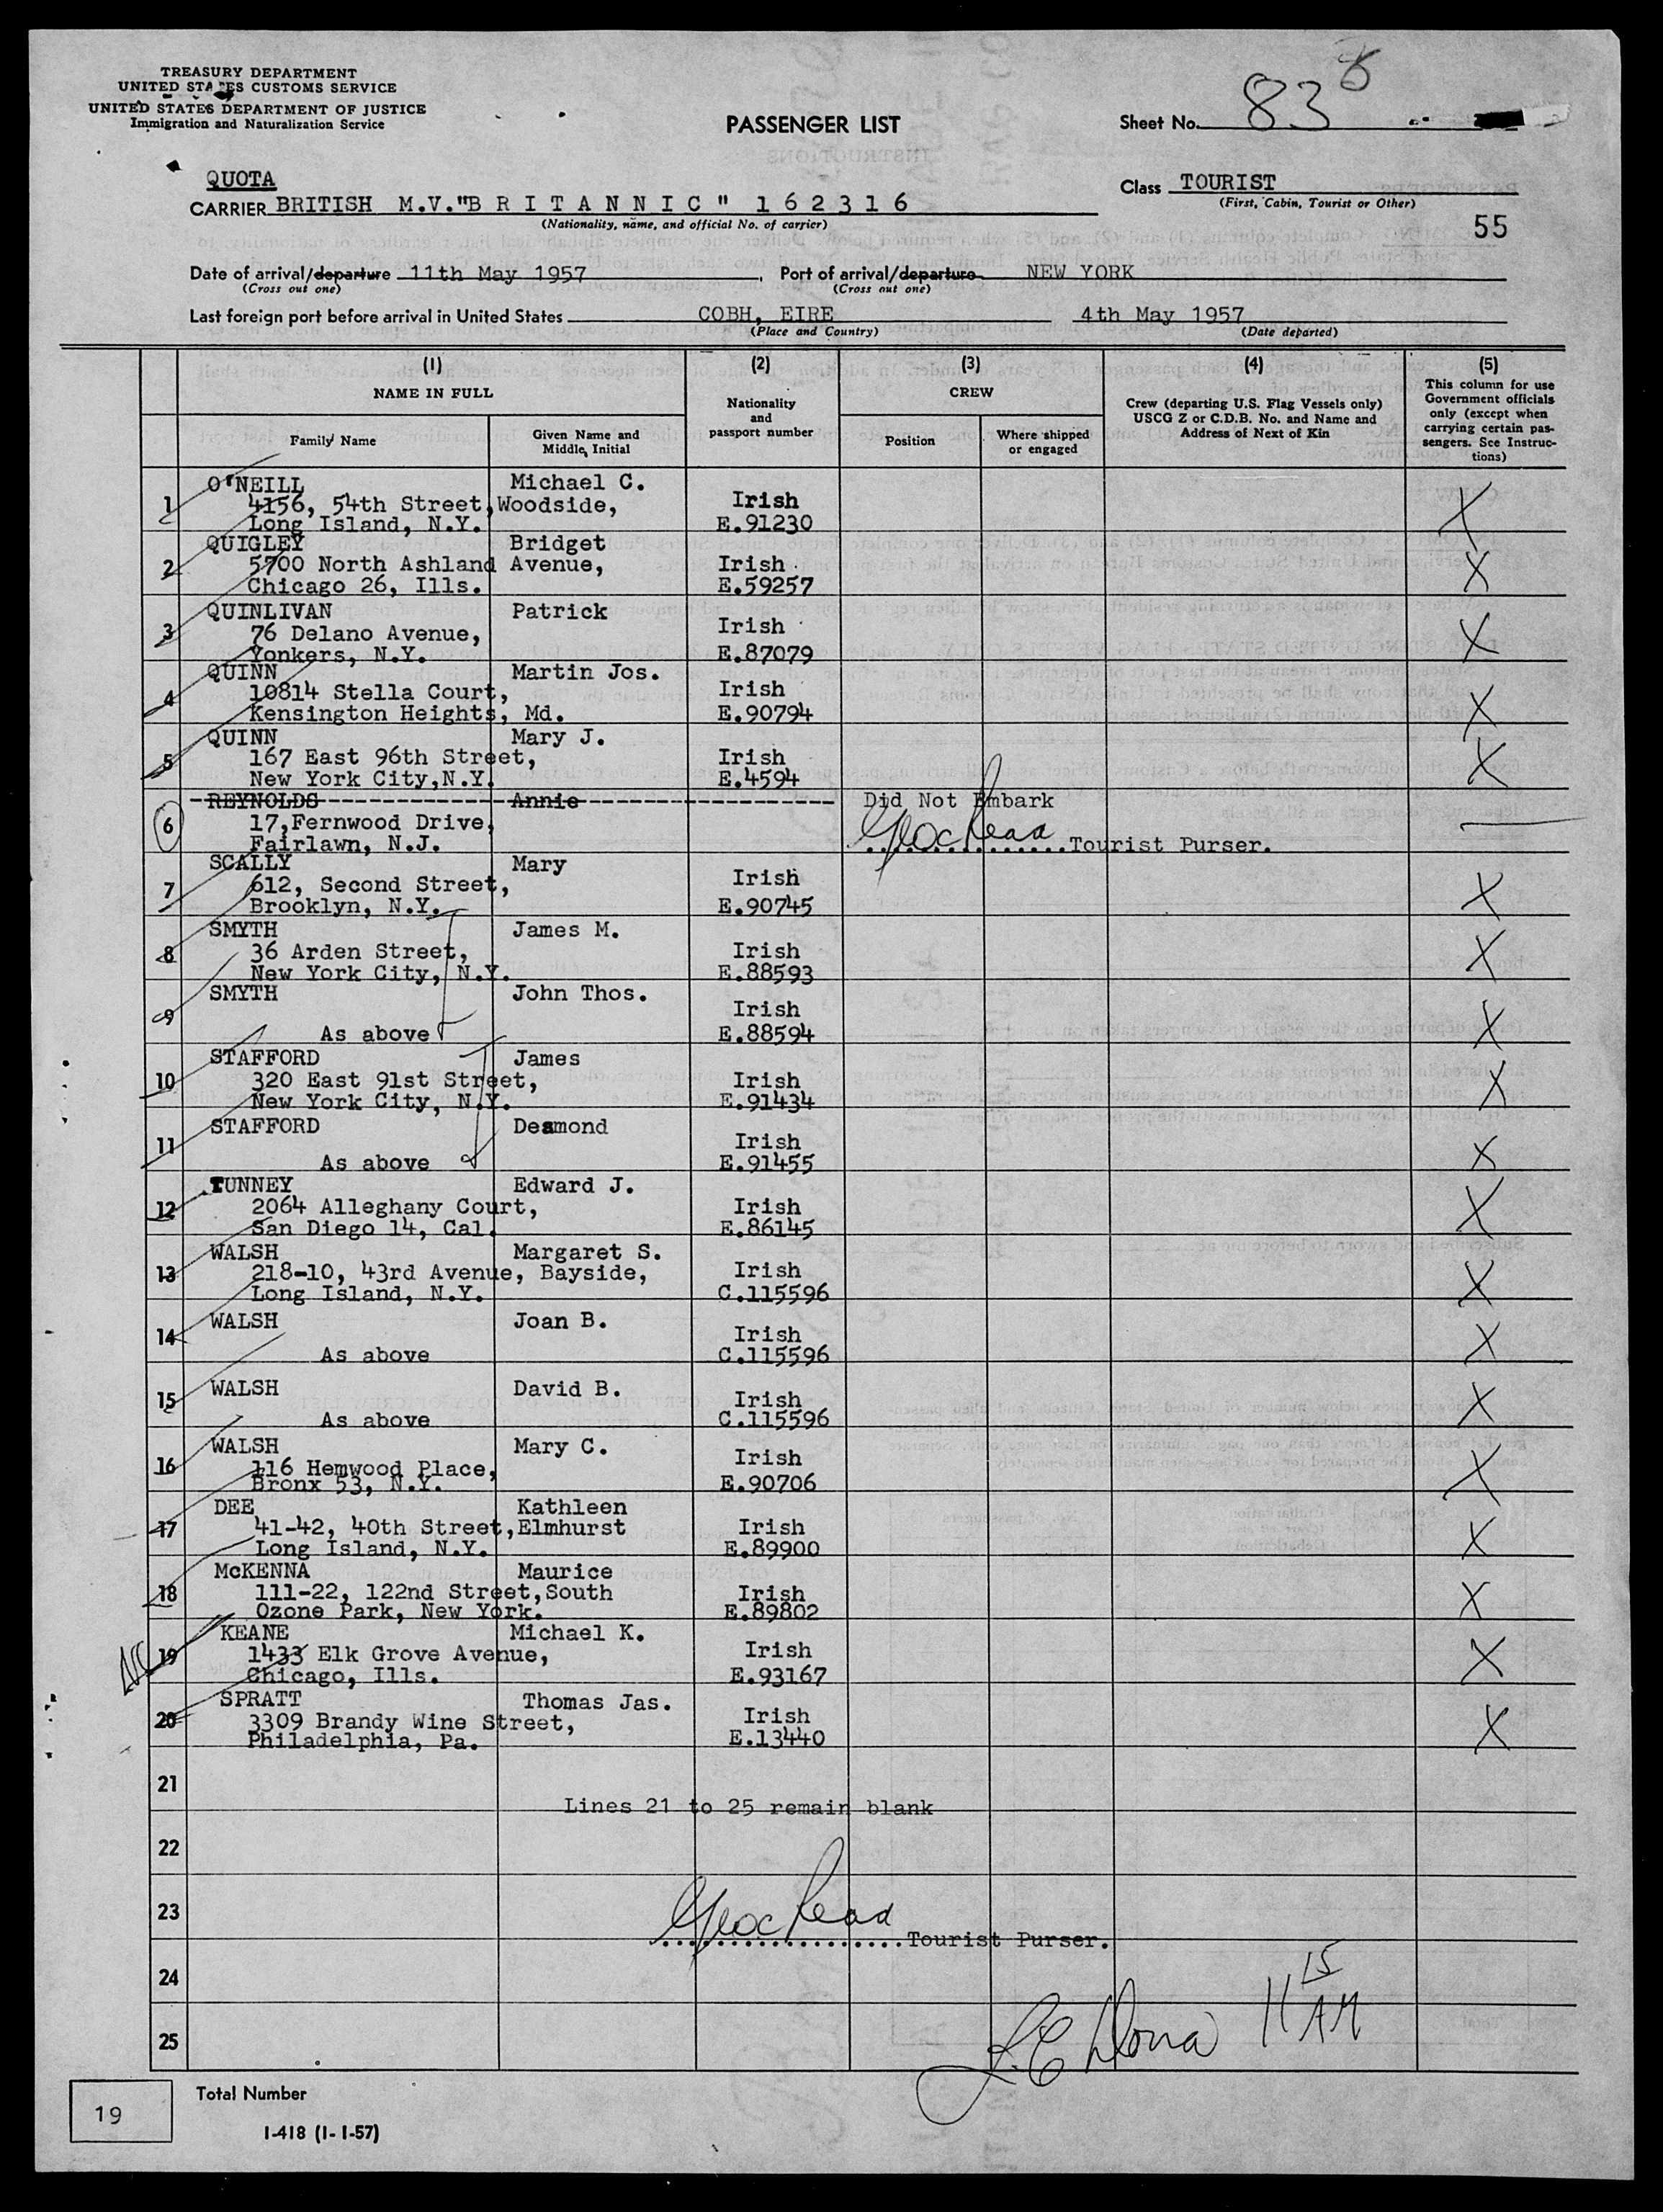 TREASURY DEPARTMENT
UNITED STATES CUSTOMS SERVICE
UNITED STATES DEPARTMENT OF JUSTICE
Immigration and Naturalization Service
PASSENGER LIST
Sheet No. 83
QUOTA
Class TOURIST
(First, Cabin, Tourist or Other)
CARRIER BRITISH M.V."B R I T A N N I C" 1 6 2 3 1 6
(Nationality, name, and official No. of carrier)
55
Date of arrival/departure 11th May 1957, Port of arrival/departure NEW YORK
(Cross out one) (Cross out one)
Last foreign port before arrival in United States COBH, EIRE 4th May 1957
(Place and Country) (Date departed)
(1) (2) (3) (4) (5)
NAME IN FULL
Family Name
Given Name and Middle Initial
Nationality and passport number
CREW
Position
Where shipped or engaged
Crew (departing U.S. Flag Vessels only) USCG Z or C.D.B. No. and Name and Address of Next of Kin
This column for use Government officials only (except when carrying certain passengers. See Instructions)
1 O'NEILL Michael C.
4156, 54th Street, Woodside, Irish
Long Island, N.Y. E.91230 X
2 QUIGLEY Bridget
5700 North Ashland Avenue, Irish
Chicago 26, Ills. E.59257 X
3 QUINLIVAN Patrick
76 Delano Avenue, Irish
Yonkers, N.Y. E.87079 X
4 QUINN Martin Jos.
10814 Stella Court, Irish
Kensington Heights, Md. E.90794 X
5 QUINN Mary J.
167 East 96th Street, Irish
New York City,N.Y. E.4594 X
6 REYNOLDS Annie Did Not Embark
17,Fernwood Drive,
Fairlawn, N.J. Tourist Purser.
7 SCALLY Mary
612, Second Street, Irish
Brooklyn, N.Y. E.90745 X
8 SMYTH James M.
36 Arden Street, Irish
New York City, N.Y. E.88593 X
9 SMYTH John Thos.
Irish
As above E.88594 X
10 STAFFORD James
320 East 91st Street, Irish
New York City, N.Y. E.91434 X
11 STAFFORD Desmond
Irish
As above E.91455 X
12 TUNNEY Edward J.
2064 Alleghany Court, Irish
San Diego 14, Cal. E.86145 X
13 WALSH Margaret S.
218-10, 43rd Avenue, Bayside, Irish
Long Island, N.Y. C.115596 X
14 WALSH Joan B.
Irish
As above C.115596 X
15 WALSH David B.
Irish
As above C.115596 X
16 WALSH Mary C.
116 Hemwood Place, Irish
Bronx 53, N.Y. E.90706 X
17 DEE Kathleen
41-42, 40th Street, Elmhurst Irish
Long Island, N.Y. E.89900 X
18 McKENNA Maurice
111-22, 122nd Street, South Irish
Ozone Park, New York. E.89802 X
19 KEANE Michael K.
1433 Elk Grove Avenue, Irish
Chicago, Ills. E.93167 X
20 SPRATT Thomas Jas.
3309 Brandy Wine Street, Irish
Philadelphia, Pa. E.13440 X
21
Lines 21 to 25 remain blank
22
23
Tourist Purser.
24
11 15 AM
25
19
Total Number
I-418 (1-1-57)